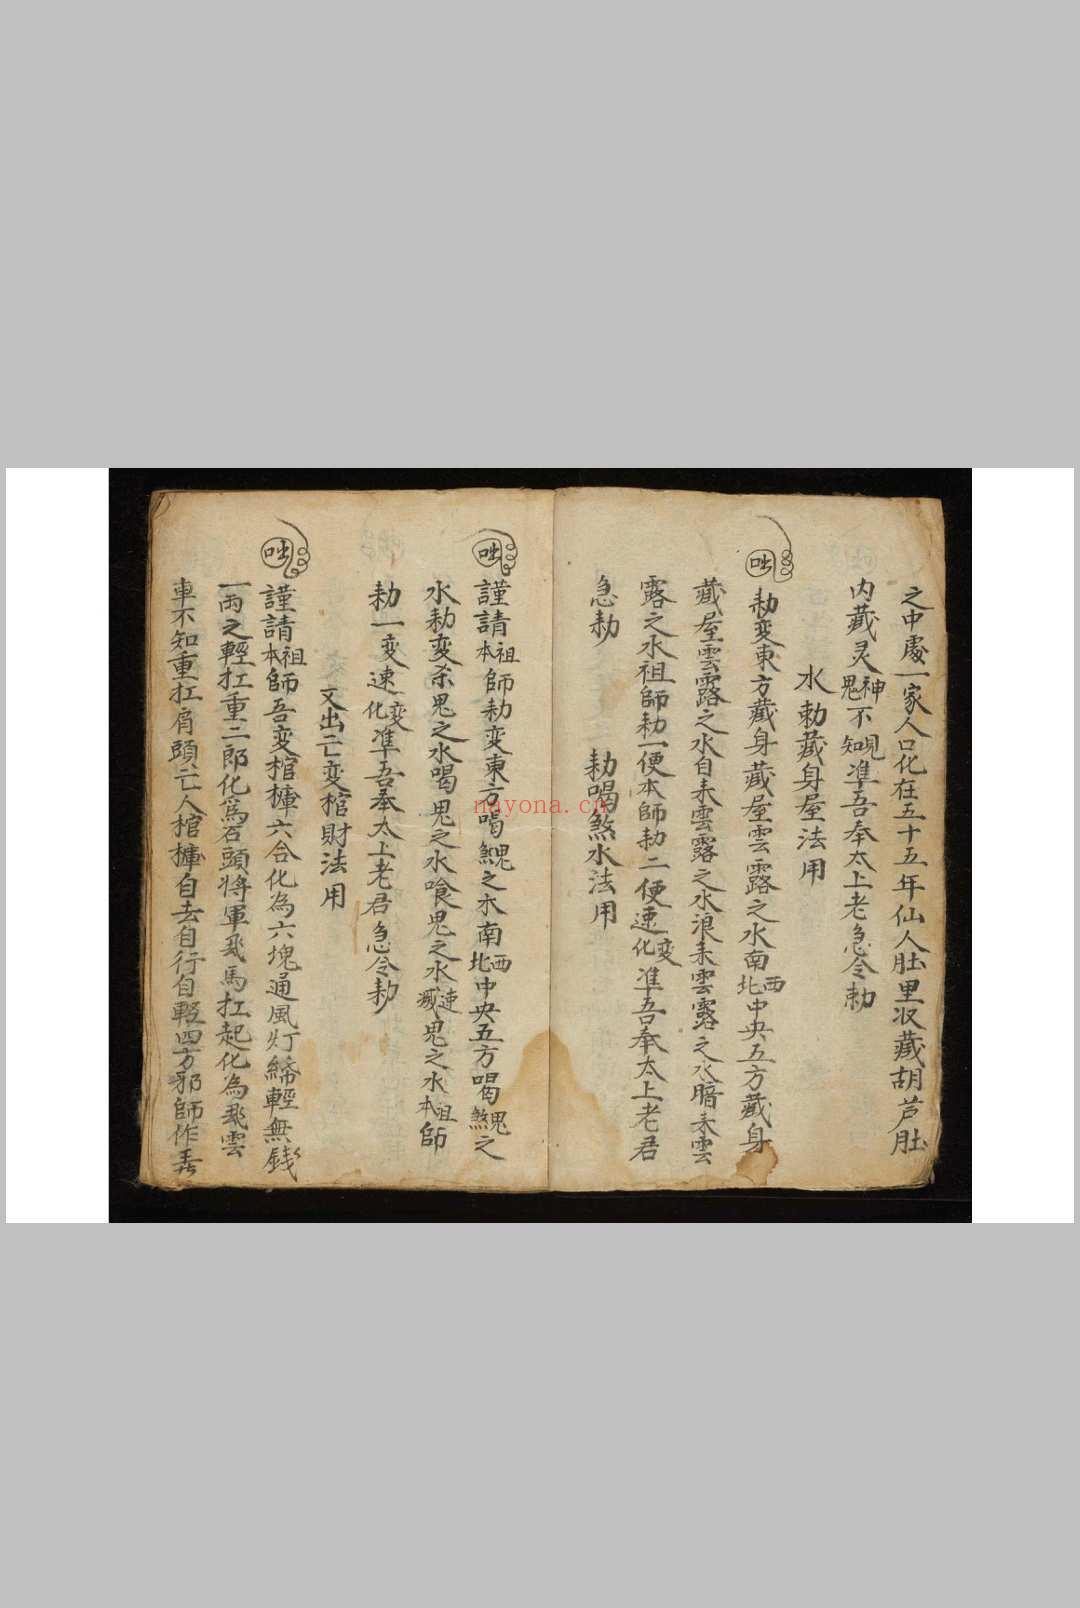 之中處一家人口化在五十五年仙人肚里収藏胡芦肚
内藏灵神鬼不見知準吾奉太上老急令勅
水勅藏身屋法用
咄
勅変東方藏身藏屋雲露之水南西北中央五方藏身
藏屋雲露之水自来雲露之水浪来雲露之水暗来雲
露之水祖師勅一便本師勅二便速変化準吾奉太上老君
急勅
勅喝煞水法用
咄
謹請祖本師勅変東方喝鬼之水南西北中央五方喝鬼煞之
水勅変杀鬼之水喝鬼之水喰鬼之水速滅鬼之水祖本師
勅一変速変化準吾奉太上老君急令勅
又出亡变棺財法用
咄
謹請祖本師吾变棺槤六合化為六塊通風灯綿輕無錢
一両之輕扛重二郎化為石頭将軍飛馬扛起化為飛雲
車不知重扛肩頭亡人棺槤自去自行自輕四方邪師作弄
nayona.cn